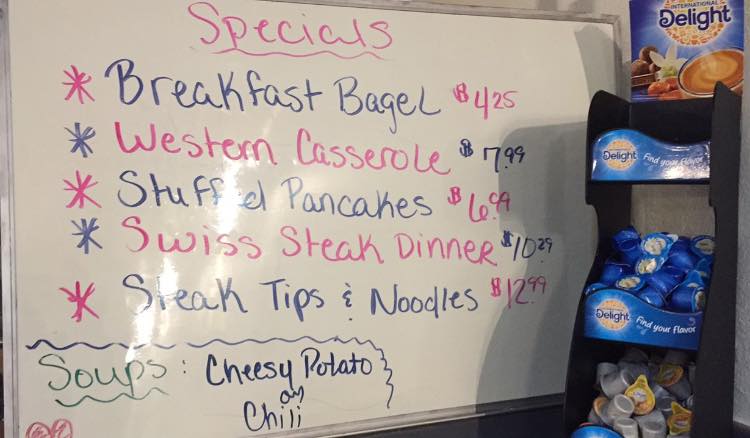 Specials
* Breakfast Bagel $4.25
* Western Casserole $7.99
* Stuffed Pancakes $6.99
* Swiss Steak Dinner $10.29
* Steak Tips & Noodles $12.99
Soups: Cheesy Potato
or
Chili
INTERNATIONAL
Delight
Delight Find your flavor
Delight Find your flavor